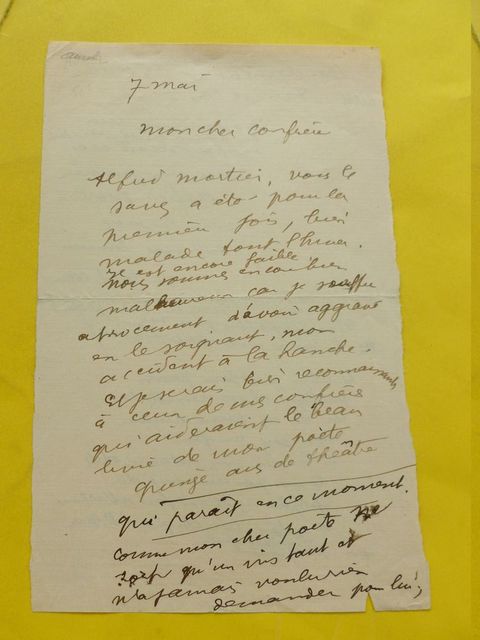 7 mai
mon cher confrère
Alfred Mortier, vous le
savez a été pour la
première fois, très
malade tout l'hiver.
Il est encore faible
nous sommes encore bien
malheureux car je souffre
atrocement d'avoir aggravé
en le soignant, mon
accident à la hanche.
et je serais très reconnaissante
à ceux de mes confrères
qui aideraient le beau
livre de mon poète
quinze ans de théâtre
qui paraît en ce moment.
comme mon cher poète ne
qu'un vis tant et
n'a jamais voulu rien
demander pour lui,